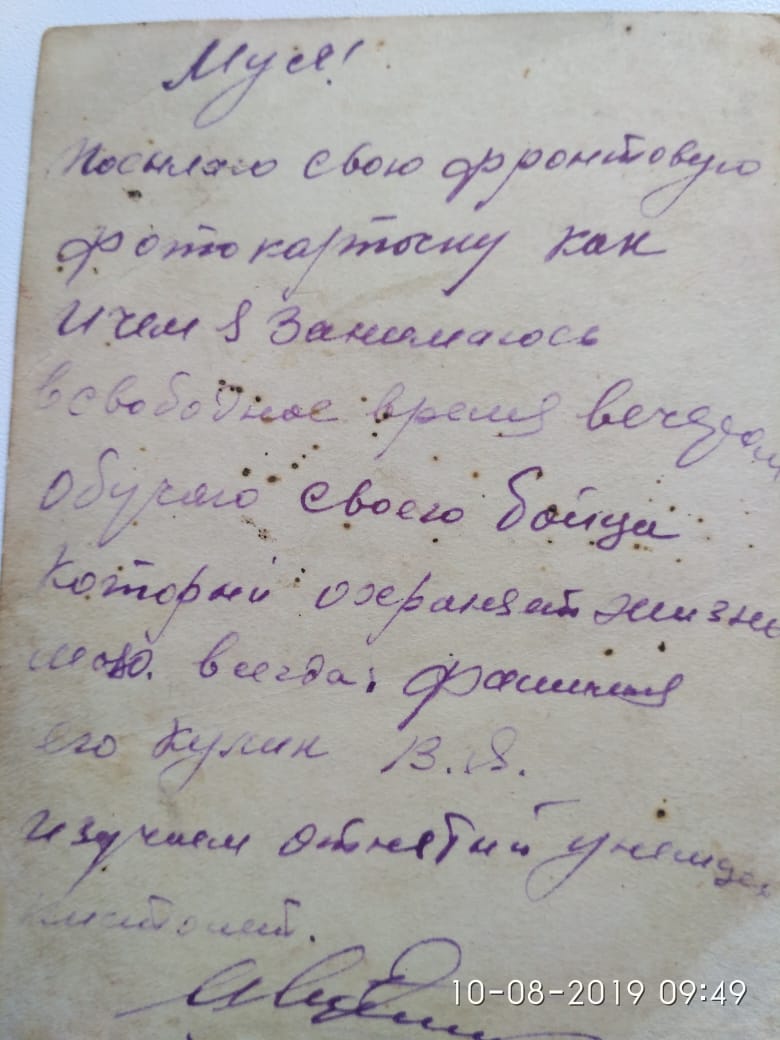 Муся!
Посылаю свою фронтовую
фотокарточку как
и чем я занимаюсь
в свободное время вечером
обучаю своего бойца
который охраняет жизнь
мою. всегда. фамилия
его Кулик В.Я.
изучаем отнятий у немцев
пистолет.
10-08-2019 09:49